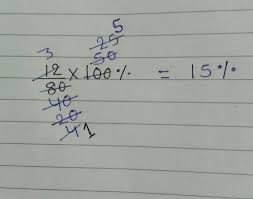 3 5
25
50
12 × 100% = 15%
80
40
20
4 1